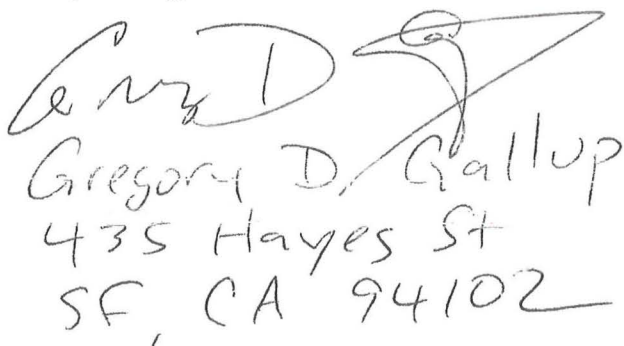 Gregory D. Gallup
435 Hayes St
SF, CA 94102